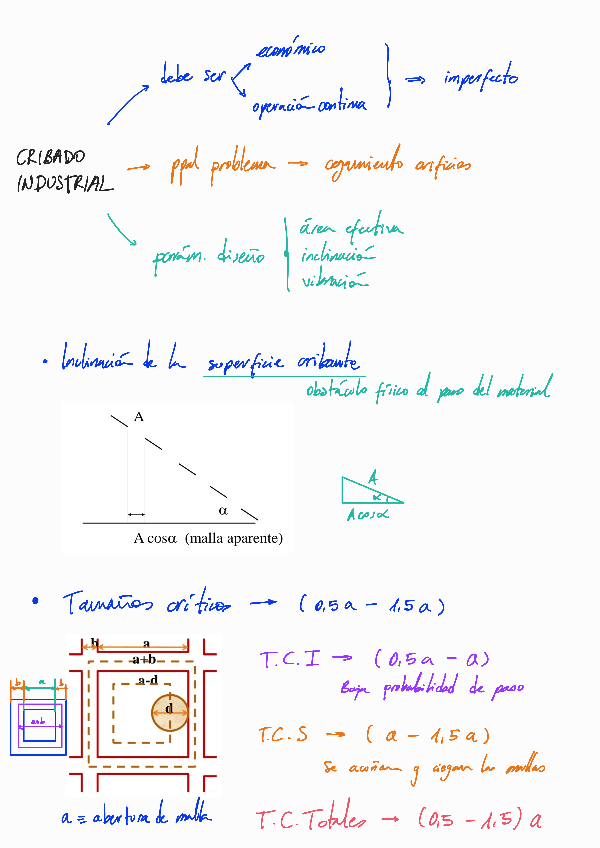 económico
debe ser
operación continua
⇒ imperfecto
CRIBADO
INDUSTRIAL
→ ppal problema → cegamiento orificios
parám. diseño
área efectiva
inclinación
vibración
• Inclinación de la superficie cribante
obstáculo físico al paso del material
A
α
A cosα (malla aparente)
A
α
A cosα
• Tamaños críticos → (0,5a - 1,5a)
b a
a+b
a-d
d
b a b
a+b
T.C.I → (0,5a - a)
Baja probabilidad de paso
T.C.S → (a - 1,5a)
Se acuñan y ciegan las mallas
a ≡ abertura de malla
T.C.Totales → (0,5 - 1,5) a